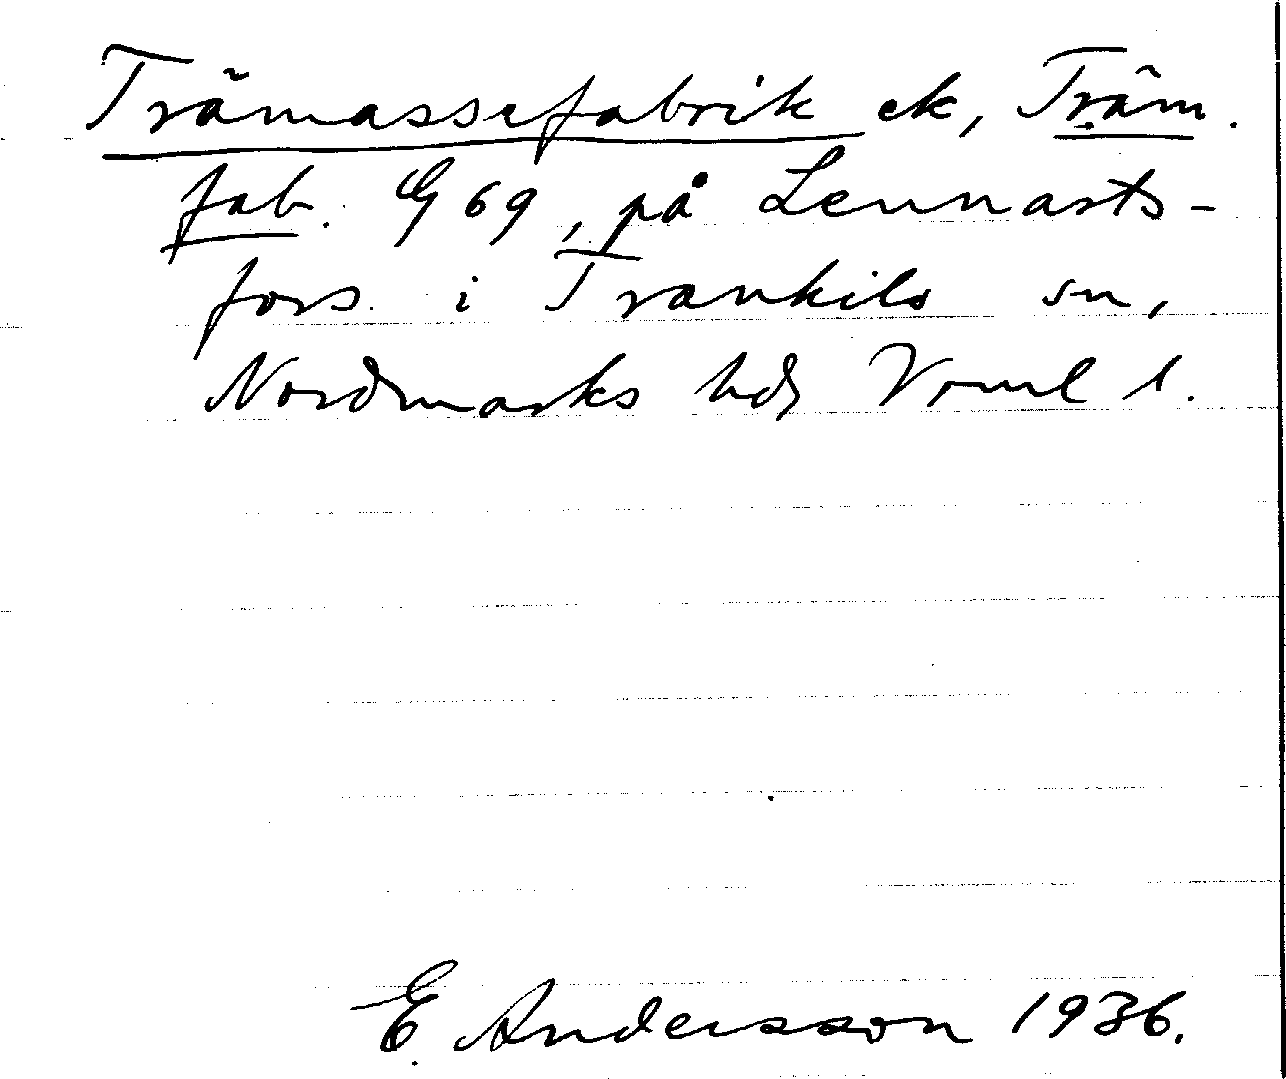 Trämassefabrik ek, Träm.
fab. G 69, på Lennarts-
fors i Trankils sn,
Nordmarks hd, Vrml l.
E. Andersson 1936.